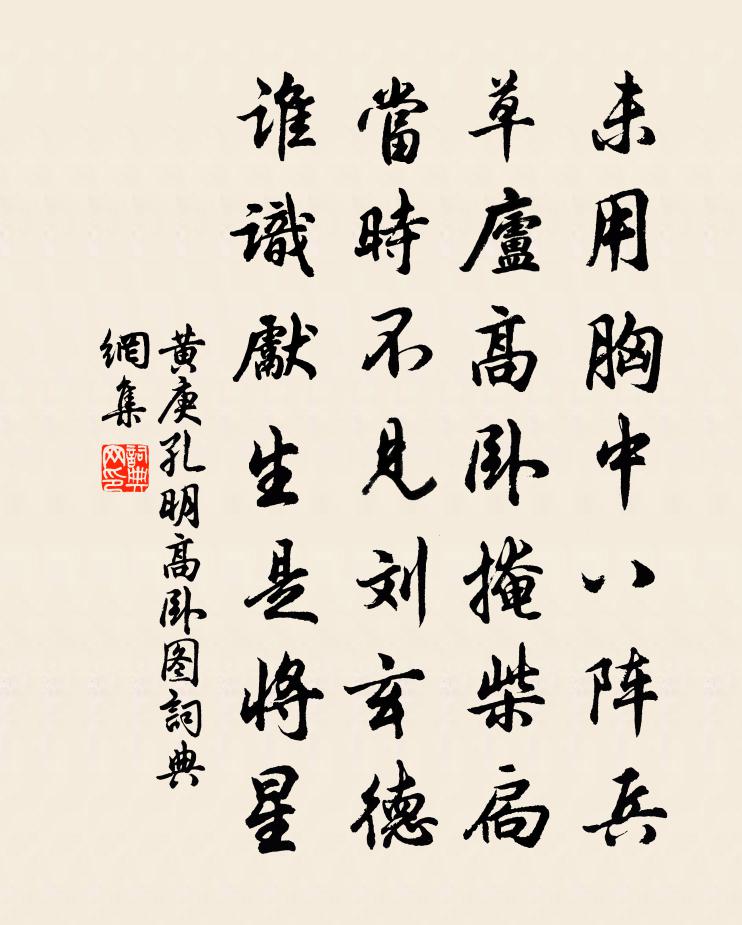 未用胸中八阵兵
草廬高卧掩柴扃
當時不見刘玄德
誰識獻生是將星
黄庚孔明高卧图詞典
網集
詞典
网印